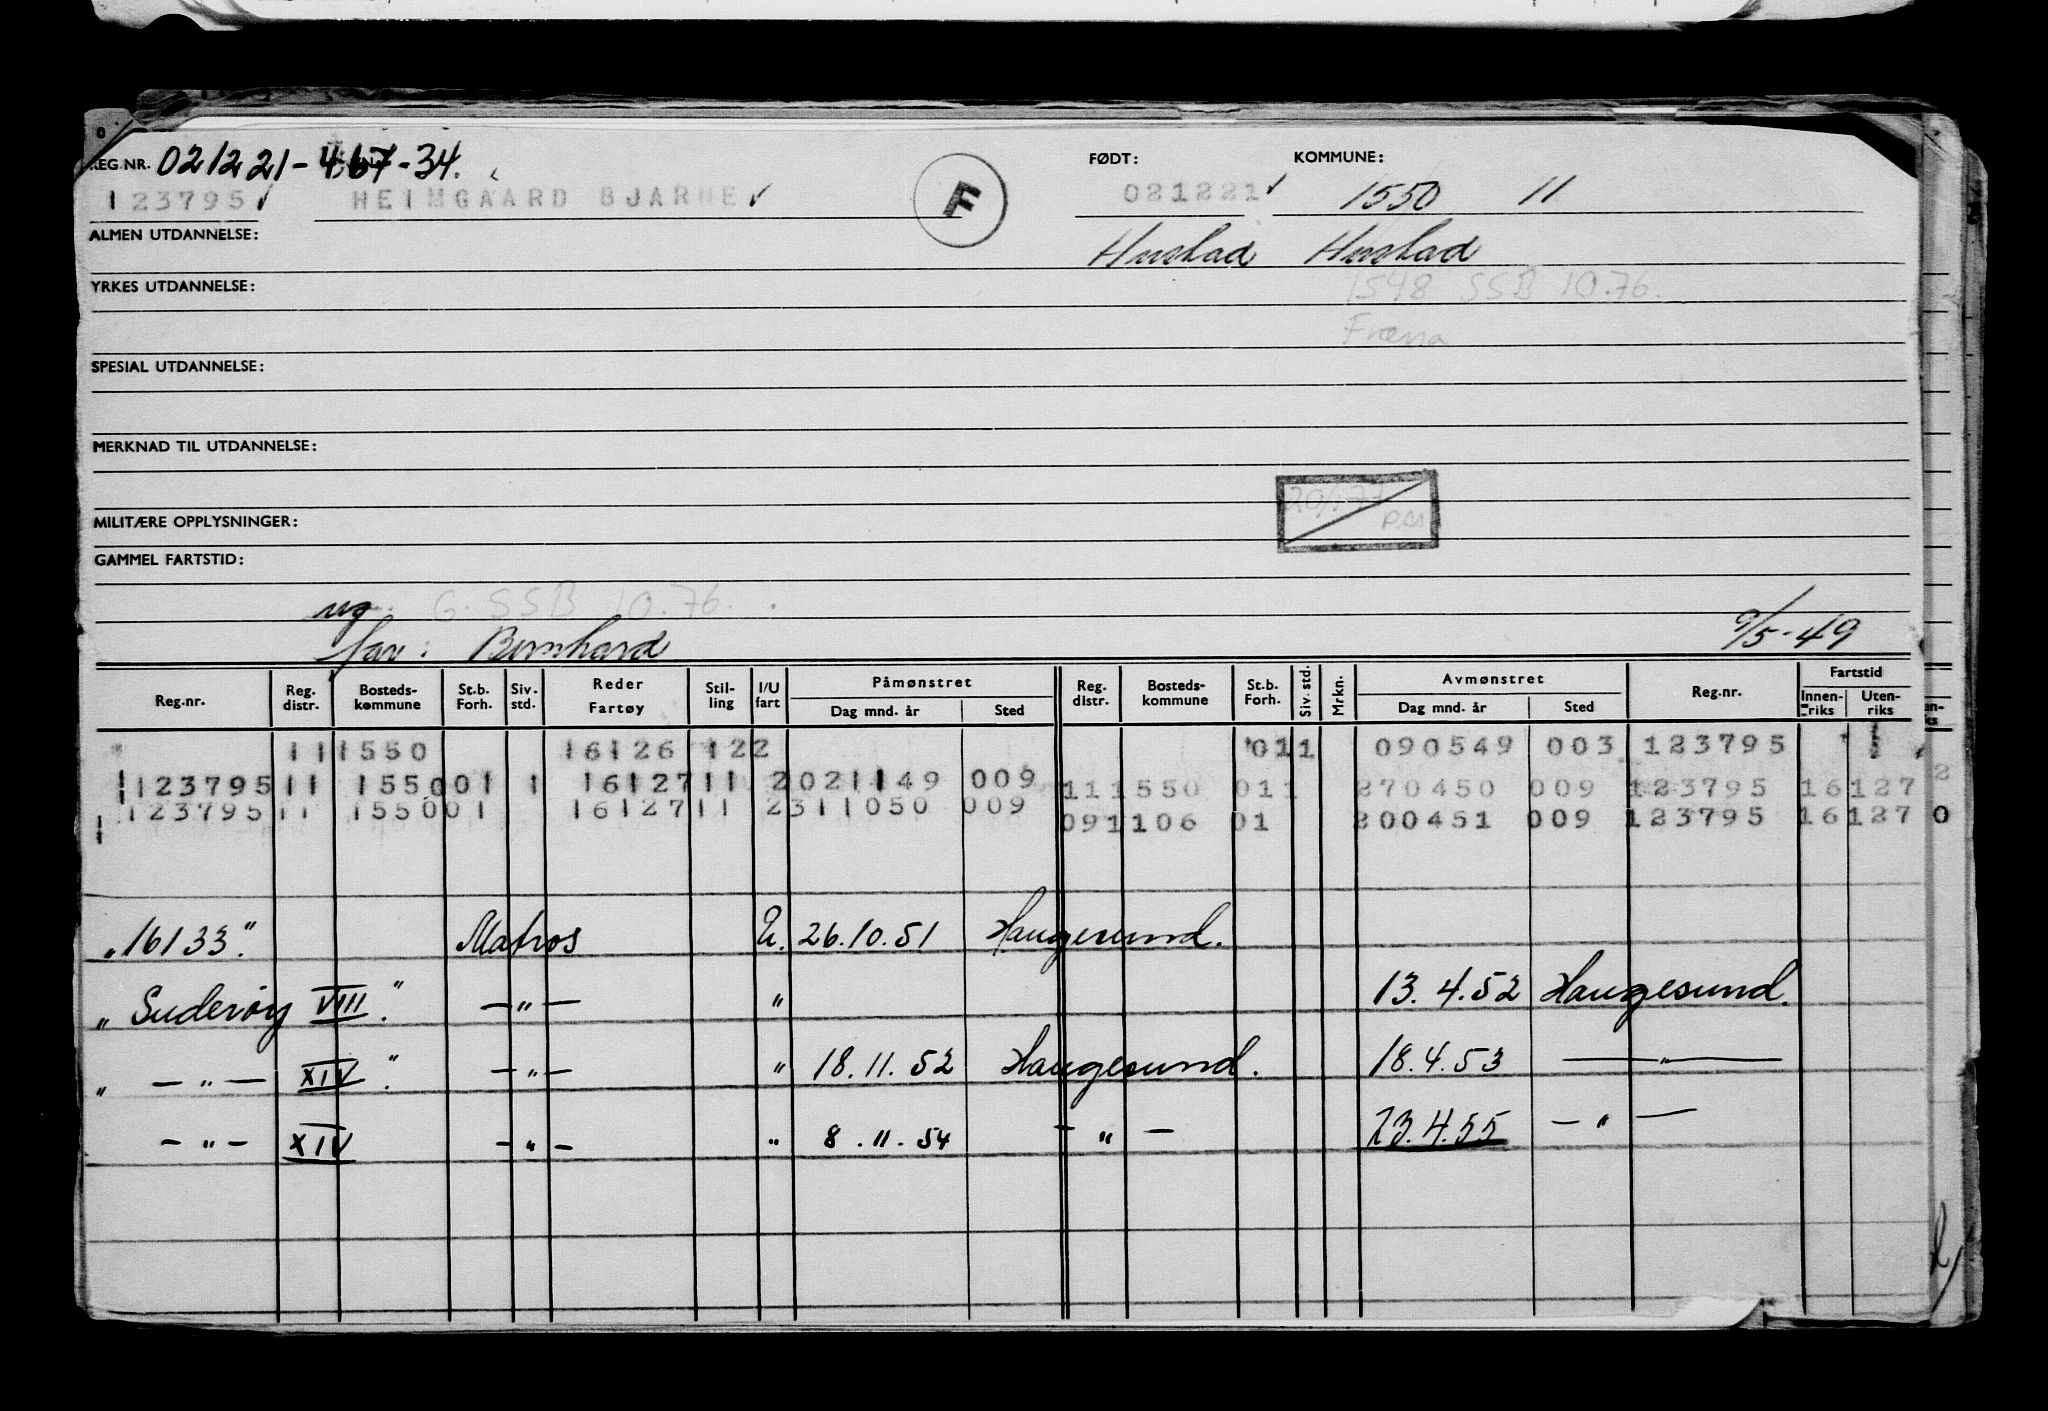 REG.NR. 021221-467-34.
FØDT: KOMMUNE:
123795 HEIMGAARD BJARNE F 021221 1550 11
ALMEN UTDANNELSE: Hustad Hustad
YRKES UTDANNELSE: 1548 SSB 10.76.
Fræna
SPESIAL UTDANNELSE:
MERKNAD TIL UTDANNELSE:
MILITÆRE OPPLYSNINGER:
GAMMEL FARTSTID:
ug G. SSB 10.76.
far: Bernhard 9/5-49
Reg.nr. Reg. distr. Bosteds-kommune St.b. Forh. Siv. std. Reder Fartøy Stil-ling I/U fart Påmønstret Dag mnd. år Sted Reg. distr. Bosteds-kommune St.b. Forh. Siv. std. Mrkn. Avmønstret Dag mnd. år Sted Reg.nr. Fartstid Innen-riks Uten-riks
11 1550 16126 122 011 090549 003 123795
123795 11 1550 01 1 16127 11 2 021149 009 11 1550 011 270450 009 123795 16127
123795 11 1550 01 16127 11 2 311050 009 09 1106 01 200451 009 123795 16127 0
"16133." Matros U. 26.10.51 Haugesund.
"Suderøy VIII." — " — " 13.4.52 Haugesund.
" — " — XIV." — " — " 18.11.52 Haugesund. 18.4.53 — " —
— " — XIV — " — " 8.11.54 — " — 23.4.55 — " —